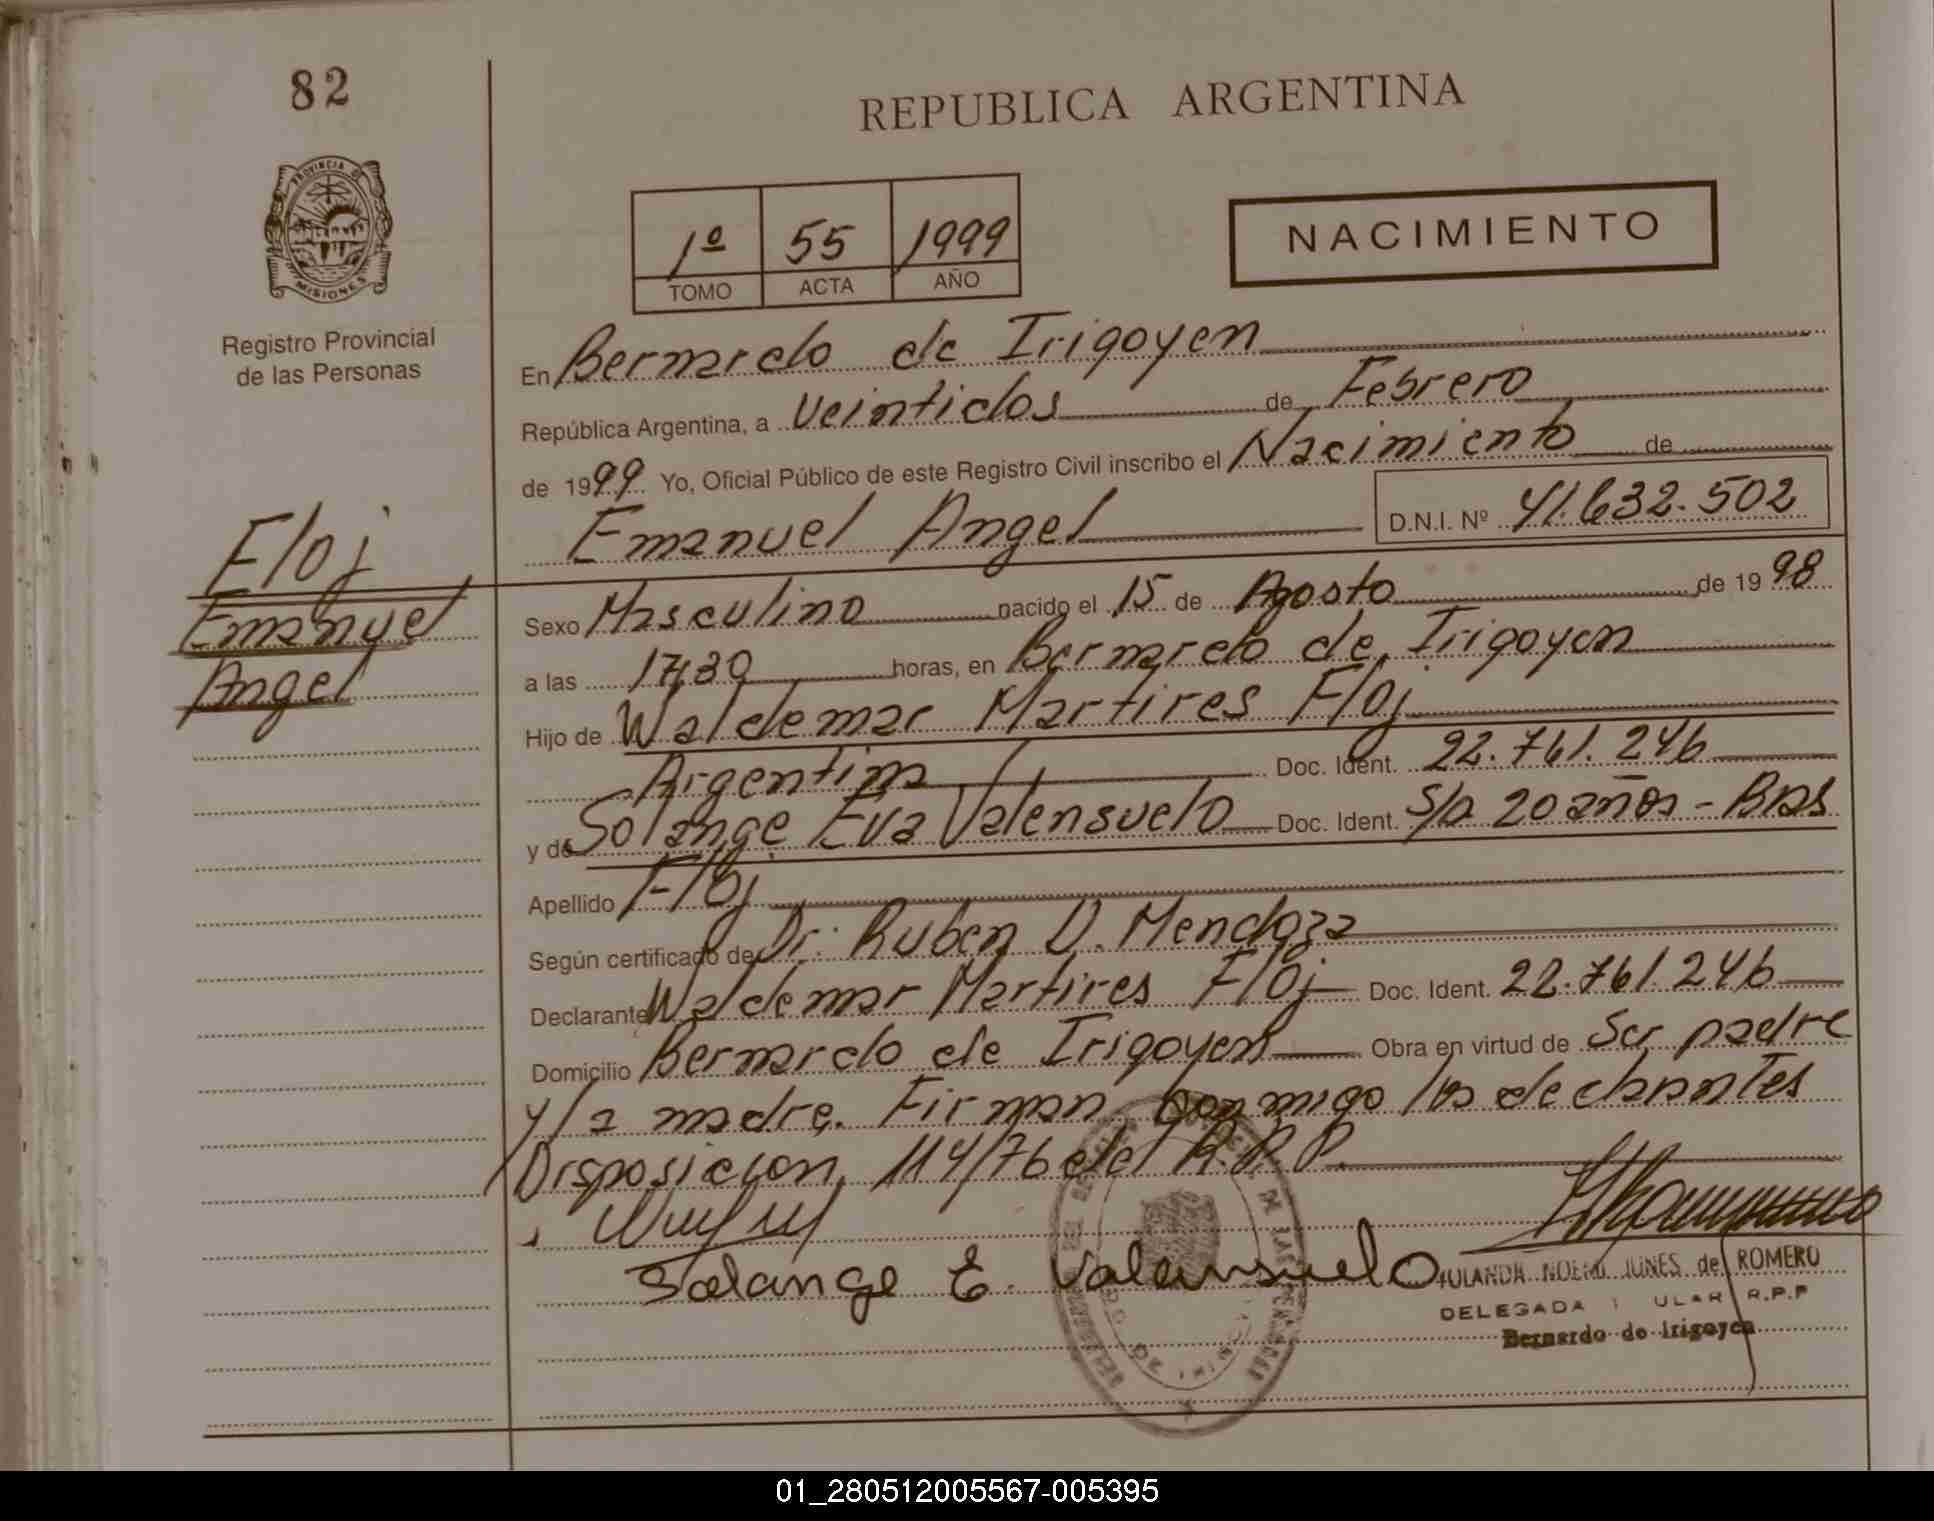 82
REPUBLICA ARGENTINA
PROVINCIA DE
MISIONES
Registro Provincial
de las Personas
1º 55 1999
TOMO ACTA AÑO
NACIMIENTO
En Bernardo de Irigoyen
República Argentina, a veintidos de Febrero
de 1999 Yo, Oficial Público de este Registro Civil inscribo el Nacimiento de
Emanuel Angel D.N.I. Nº 41.632.502
Floj
Emanuel
Angel
Sexo Masculino nacido el 15 de Agosto de 1998
a las 17,30 horas, en Bernardo de Irigoyen
Hijo de Waldemar Martires Floj
Argentina Doc. Ident. 22.761.246
y de Solange Eva Valensuelo Doc. Ident. S/D 20 años - Bras
Apellido Floj
Según certificado de Dr. Ruben D. Mendoza
Declarante Waldemar Martires Floj Doc. Ident. 22.761.246
Domicilio Bernardo de Irigoyen Obra en virtud de Ser padre
y la madre. Firman conmigo los declarantes
Disposicion 114/76 del R.P.P.
Solange E. Valensuelo
NOEMI JUNES de ROMERO
DELEGADA R.P.P
Bernardo de Irigoyen
01_280512005567-005395